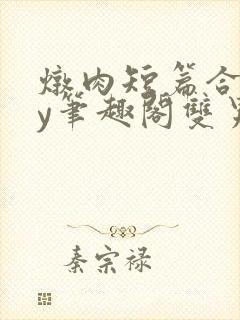 燉肉短篇合
y筆趣閣雙
秦宗禄